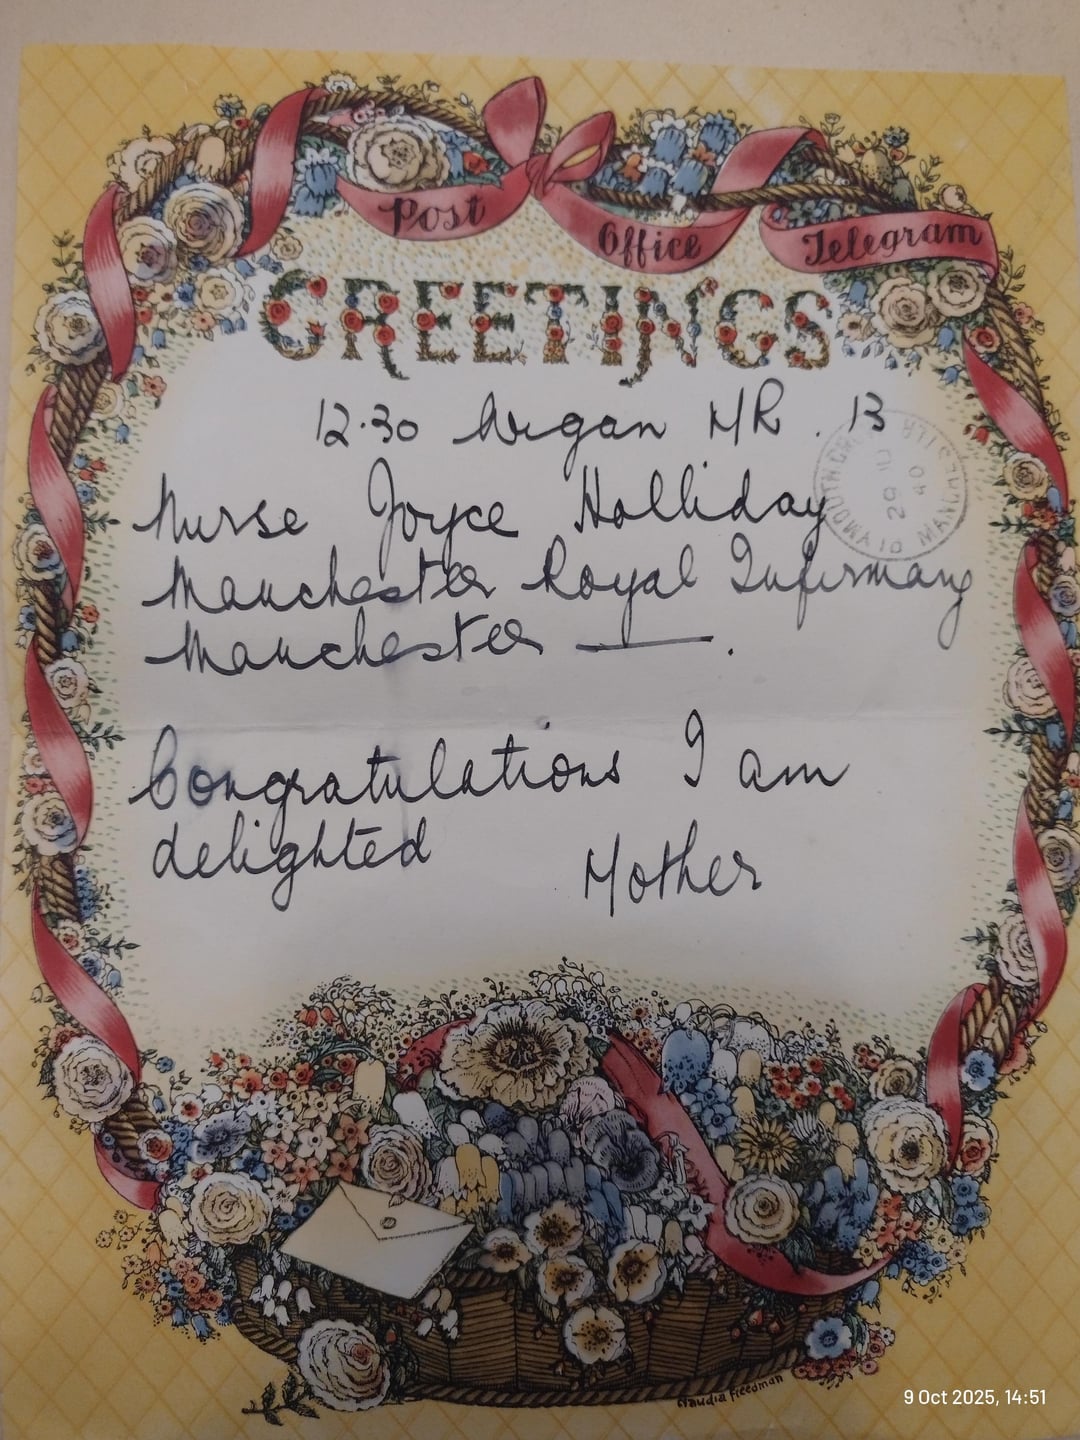 Post Office Telegram
GREETINGS
12.30 Wigan MR. 13
Nurse Joyce Holliday
Manchester Royal Infirmary
Manchester — .
Congratulations I am
delighted Mother
29 JU
40
MANCHESTER
Claudia Freedman
9 Oct 2025, 14:51